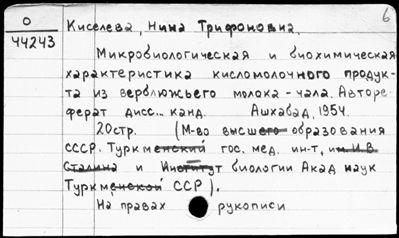 6
О
44243
Киселева, Нина Трифоновна.
Микробиологическая и биохимическая
характеристика кисломолочного продук-
та из верблюжьего молока - чала. Авторе
ферат дисс... канд. Ашхабад, 1954.
20стр. (М-во высшего образования
СССР. Туркменский гос. мед. ин-т, им. И.В.
Сталина и Институт биологии Акад наук
Туркменской ССР).
На правах рукописи